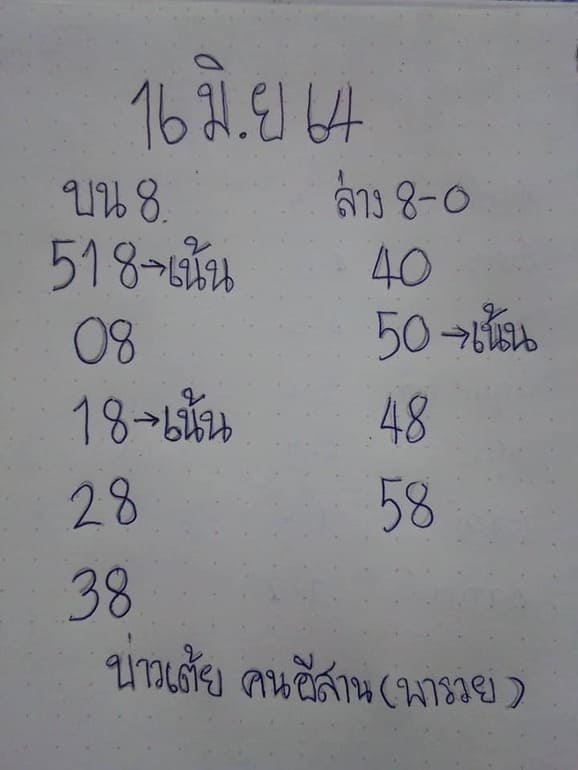 16 มิ.ย 64
บน 8 ล่าง 8-0
518→เน้น 40
08 50→เน้น
18→เน้น 48
28 58
38
บ่าวเต้ย คนอีสาน (พารวย)